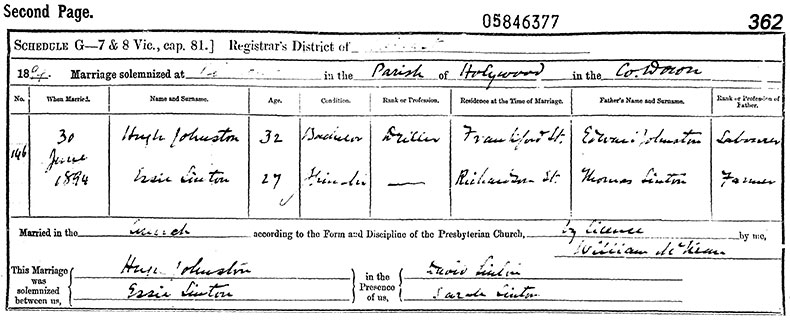 Second Page.
05846377
362
SCHEDULE G—7 & 8 Vic., cap. 81.] Registrar's District of
1894. Marriage solemnized at in the Parish of Holywood in the Co. Down
No. When Married. Name and Surname. Age. Condition. Rank or Profession. Residence at the Time of Marriage. Father's Name and Surname. Rank or Profession of Father.
146 30 June 1894
Hugh Johnston 32 Bachelor Driller Frankford St. Edward Johnston Labourer
Essie Linton 27 Spinster — Richardson St. Thomas Linton Farmer
Married in the Church according to the Form and Discipline of the Presbyterian Church, by Licence by me,
William
This Marriage was solemnized between us,
Hugh Johnston
Essie Linton
in the Presence of us,
David Linton
Sarah Linton